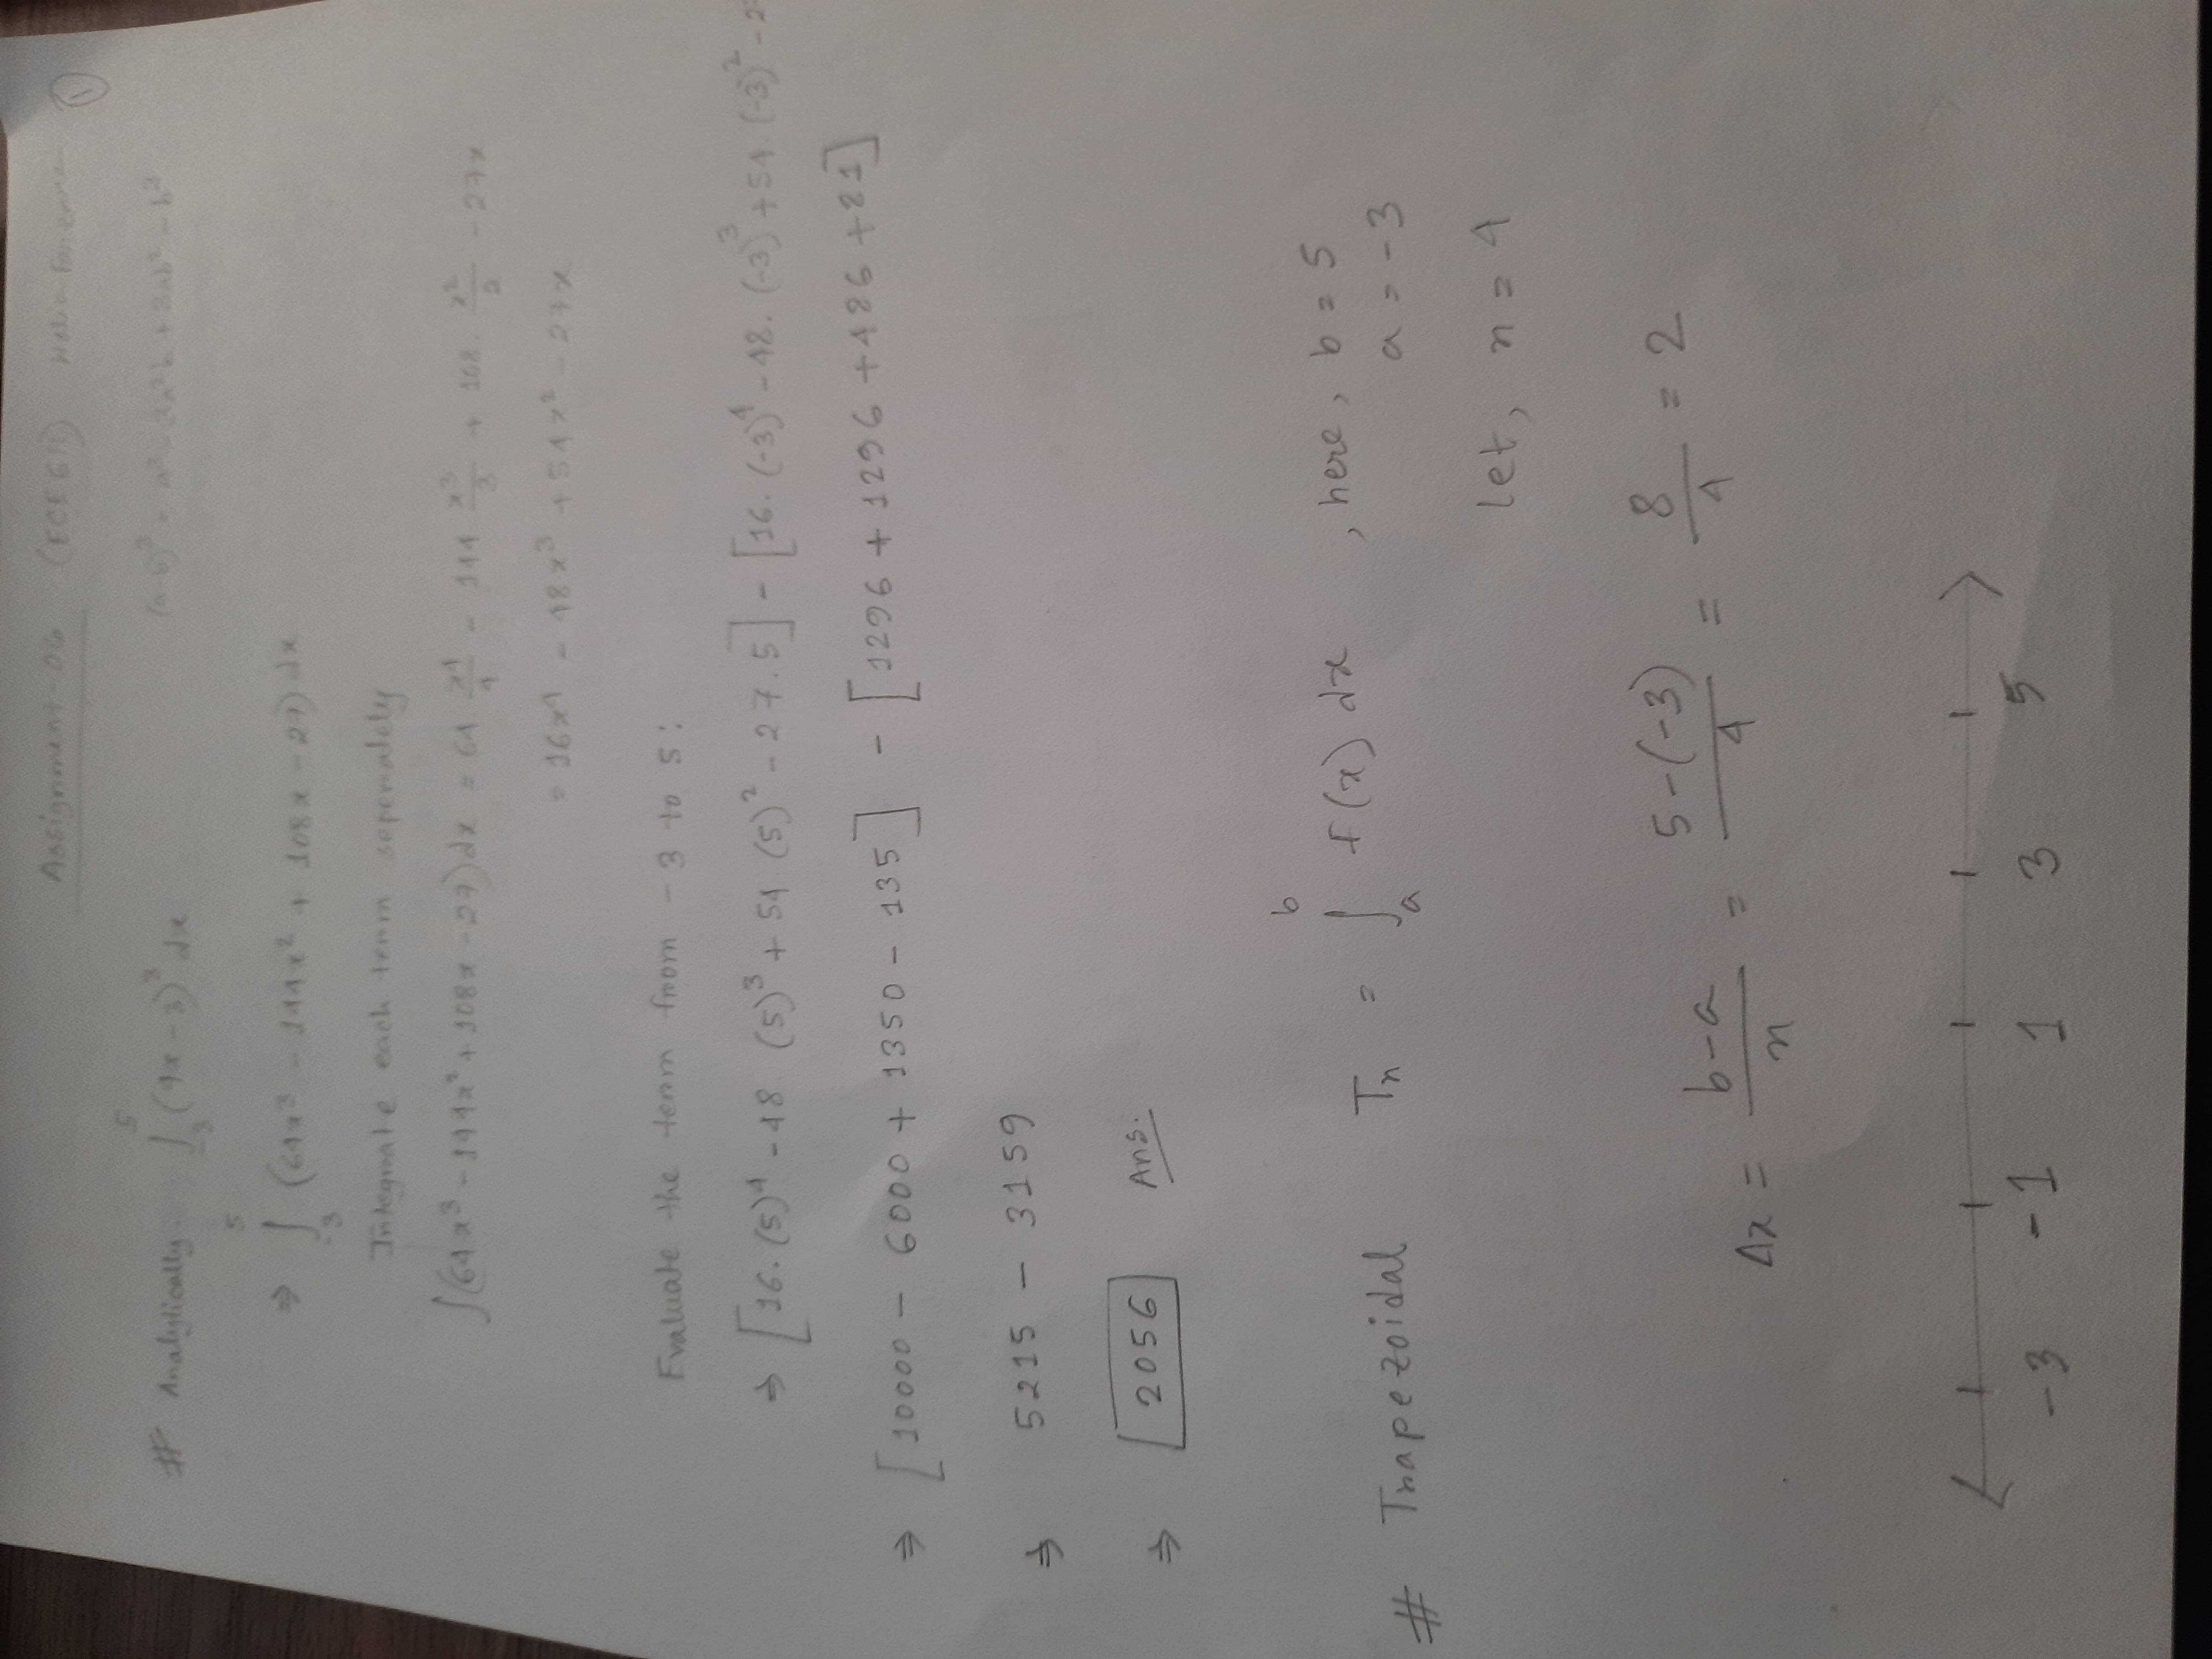 Assignment-06 (ECE 611) 1
# Analytically. ∫_{-3}^{5} (4x-3)^3 dx (a-b)^3 = a^3 - 3a^2b + 3ab^2 - b^3
⇒ ∫_{-3}^{5} (64x^3 - 144x^2 + 108x - 27) dx
Integrate each term seperately
∫(64x^3 - 144x^2 + 108x - 27) dx = 64. x^4/4 - 144 x^3/3 + 108. x^2/2 - 27x
= 16x^4 - 48x^3 + 54x^2 - 27x
Evaluate the term from -3 to 5:
⇒ [16. (5)^4 - 48 (5)^3 + 54 (5)^2 - 27.5] - [16. (-3)^4 - 48. (-3)^3 + 54 (-3)^2 - 2
⇒ [10000 - 6000 + 1350 - 135] - [1296 + 1296 + 486 + 81]
⇒ 5215 - 3159
⇒ 2056 Ans.
# Trapezoidal T_n = ∫_{a}^{b} f(x) dx , here, b = 5
a = -3
let, n = 4
Δx = b-a/n = 5-(-3)/4 = 8/4 = 2
-3 -1 1 3 5